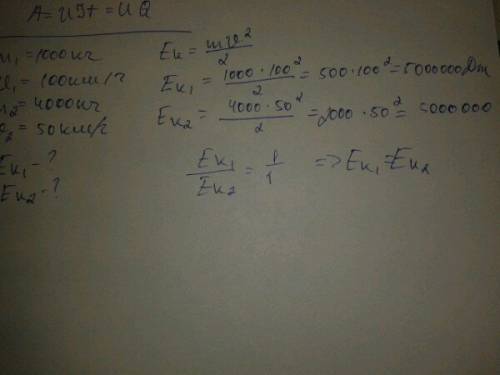 A = UIt = UQ
m₁ = 1000 кг
υ₁ = 100 км/г
m₂ = 4000 кг
υ₂ = 50 км/г
Ek₁ - ?
Ek₂ - ?
Ek = mυ²/2
Ek₁ = 1000·100²/2 = 500·100² = 5000000 Дж
Ek₂ = 4000·50²/2 = 2000·50² = 5000000
Ek₁/Ek₂ = 1/1 => Ek₁ = Ek₂